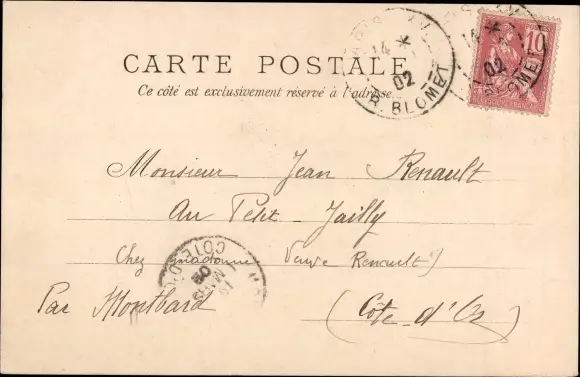 PARIS XV
14 *
02
R. BLOMET
14 *
02
BLOMET
10
CARTE POSTALE
Ce côté est exclusivement réservé à l'adresse
Monsieur Jean Renault
Au Petit-Jailly
Chez madame Veuve Renault)
CÔTE-D'O
MARS
02
Par Montbard (Côte-d'Or)